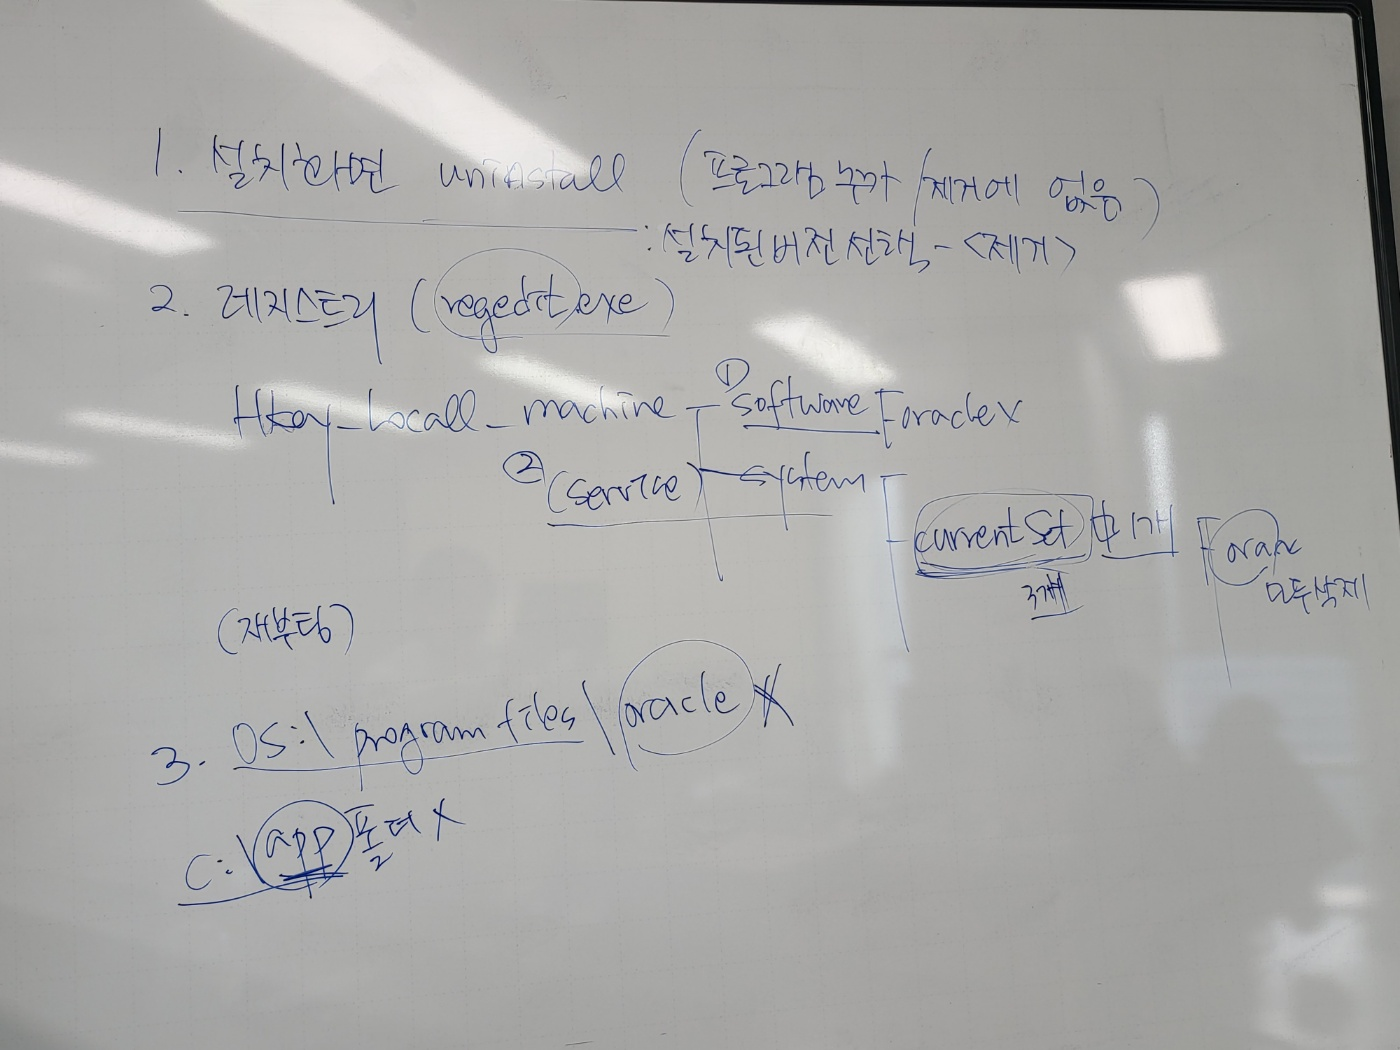 1. 설치화면 uninstall (프로그램 추가/제거에 없음)
: 설치된 버전 선택 - <제거>
2. 레지스트리 (regedit.exe)
Hkey_Locall_machine ① software oracle X
② (service) system
currentSet 中 1개 ora
3개 모두삭제
(재부팅)
3. OS:\program files\oracle X
C:\app폴더 X